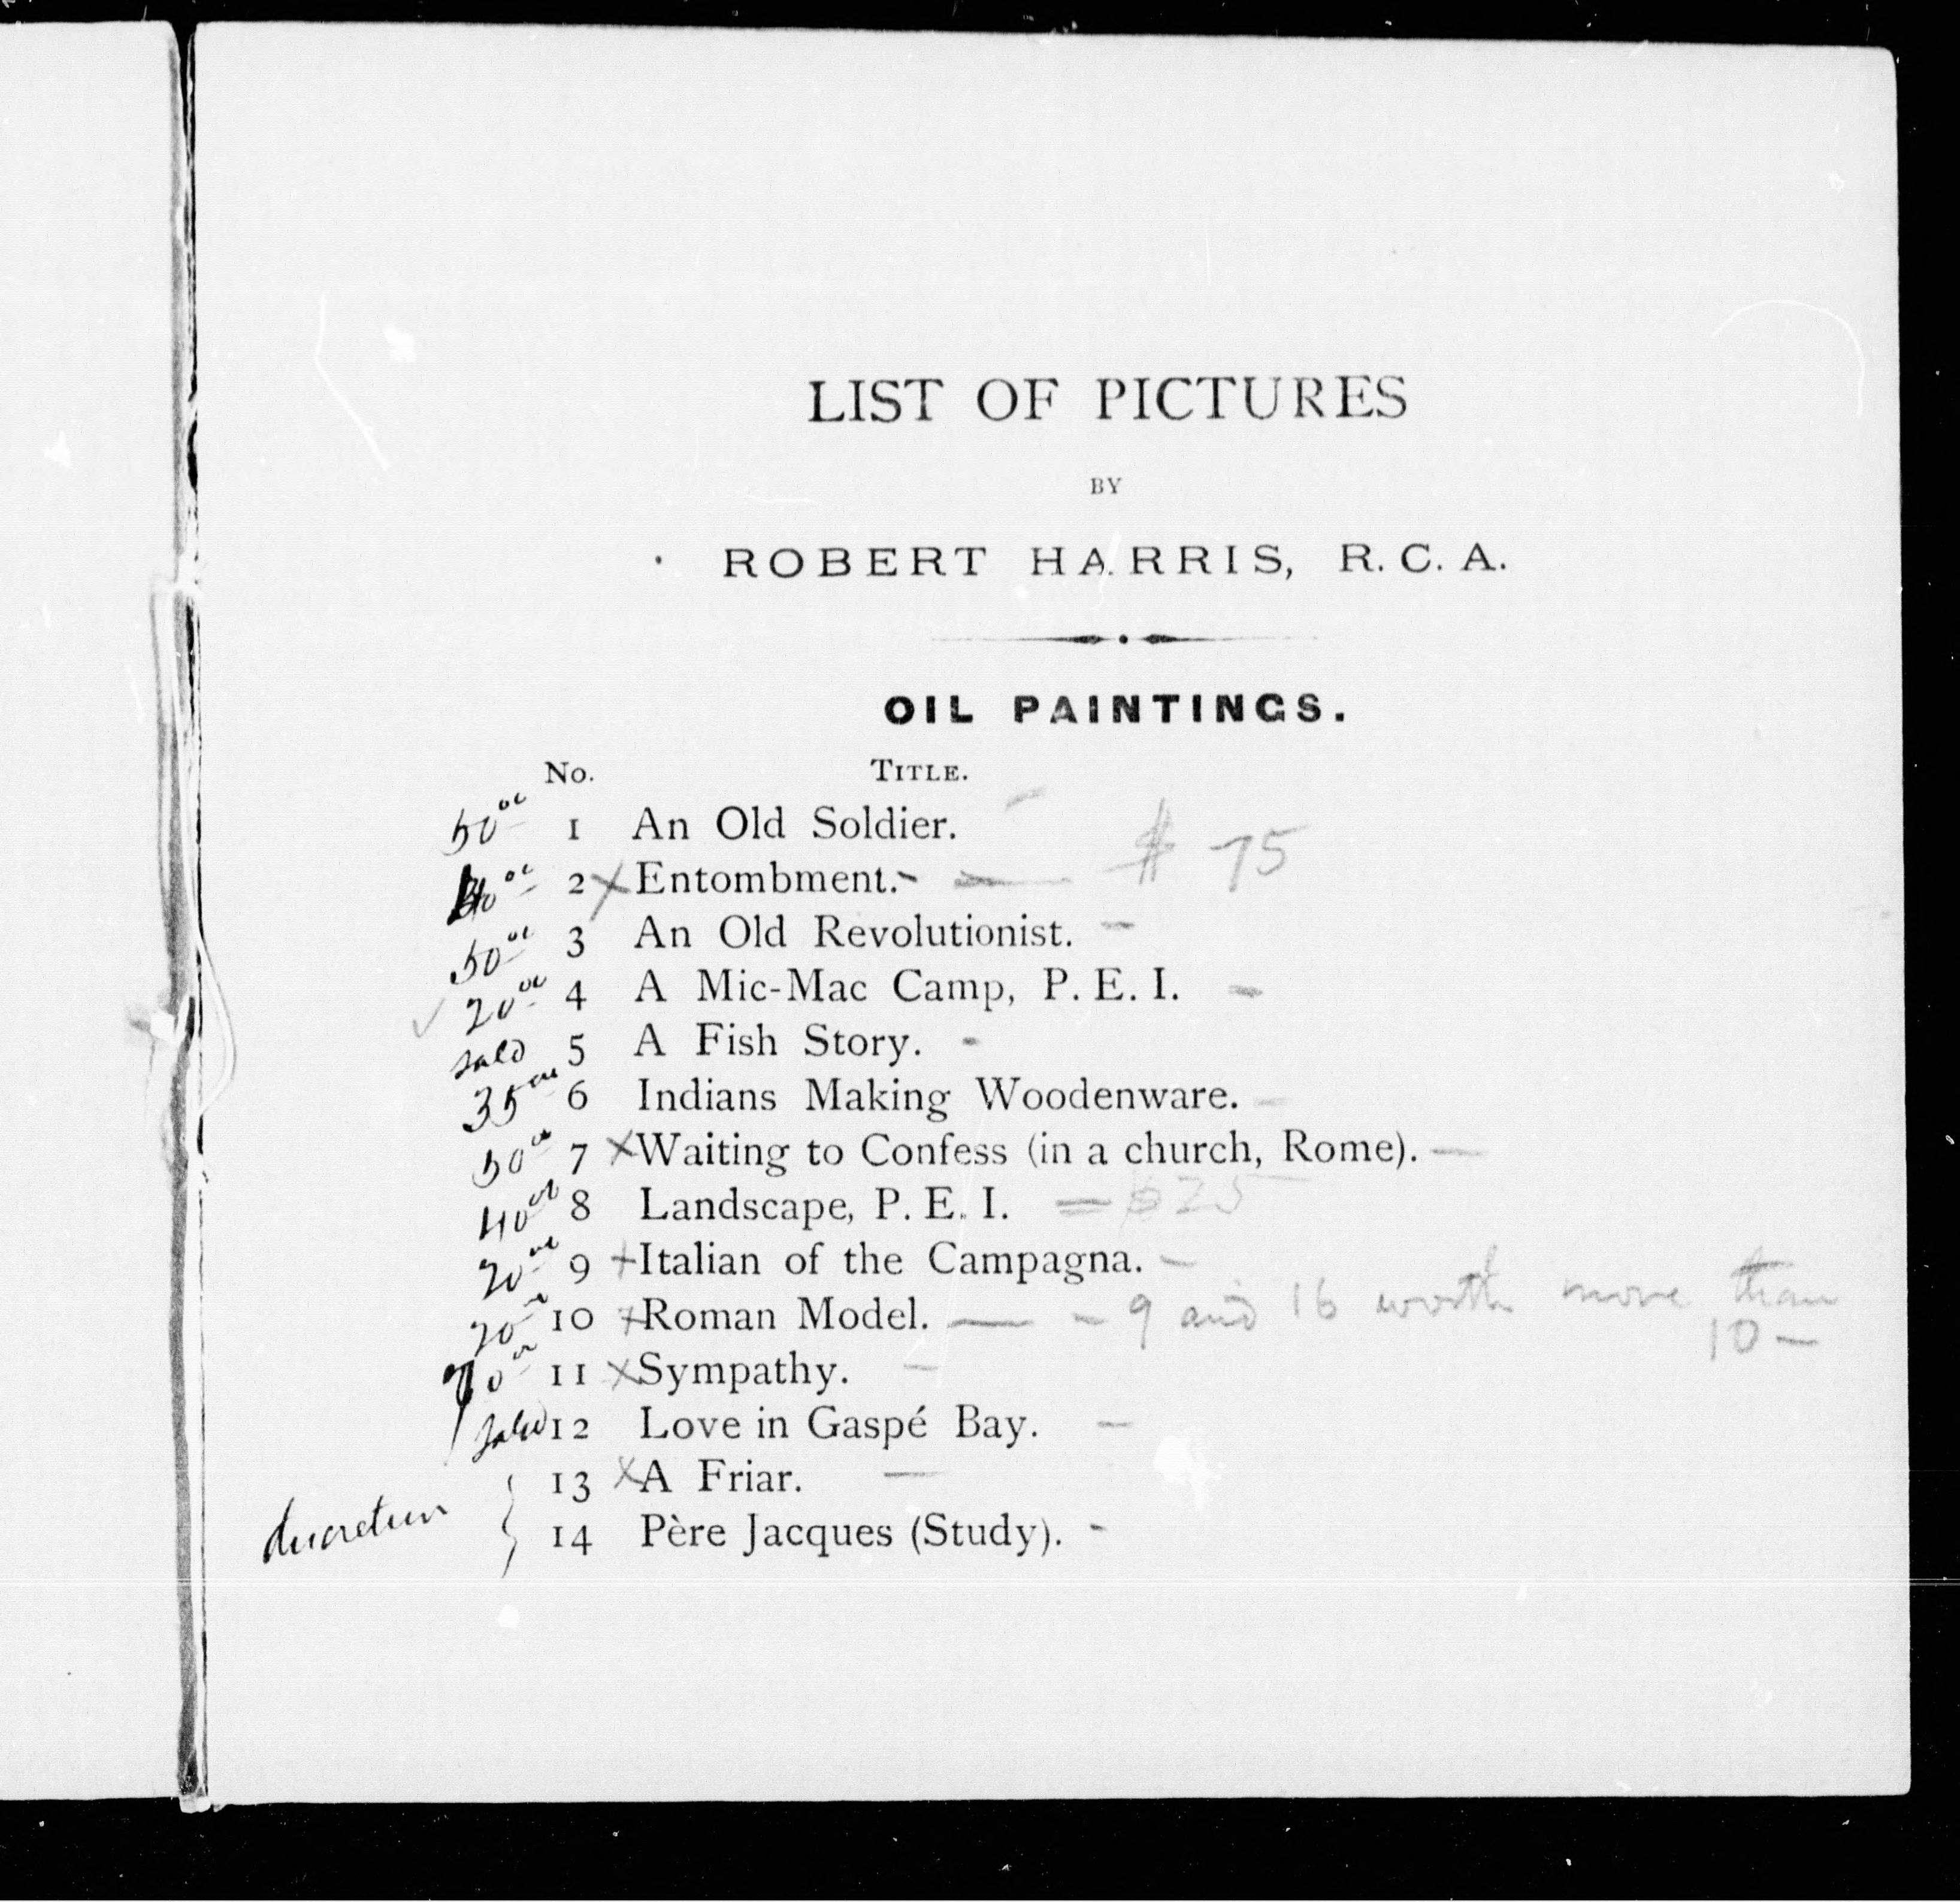 LIST OF PICTURES
BY
ROBERT HARRIS, R. C. A.
OIL PAINTINGS.
No. TITLE.
50 00 1 An Old Soldier.
40 00 2 x Entombment. - — $ 75
50 00 3 An Old Revolutionist. -
✓ 20 00 4 A Mic-Mac Camp, P. E. I. -
sold 5 A Fish Story. -
35 00 6 Indians Making Woodenware. -
50 00 7 x Waiting to Confess (in a church, Rome). —
40 00 8 Landscape, P. E. I. = $25
20 00 9 + Italian of the Campagna. -
20 00 10 + Roman Model. — - 9 and 16 worth more than
10 —
11 x Sympathy. -
sold 12 Love in Gaspé Bay. -
13 x A Friar. —
14 Père Jacques (Study). -